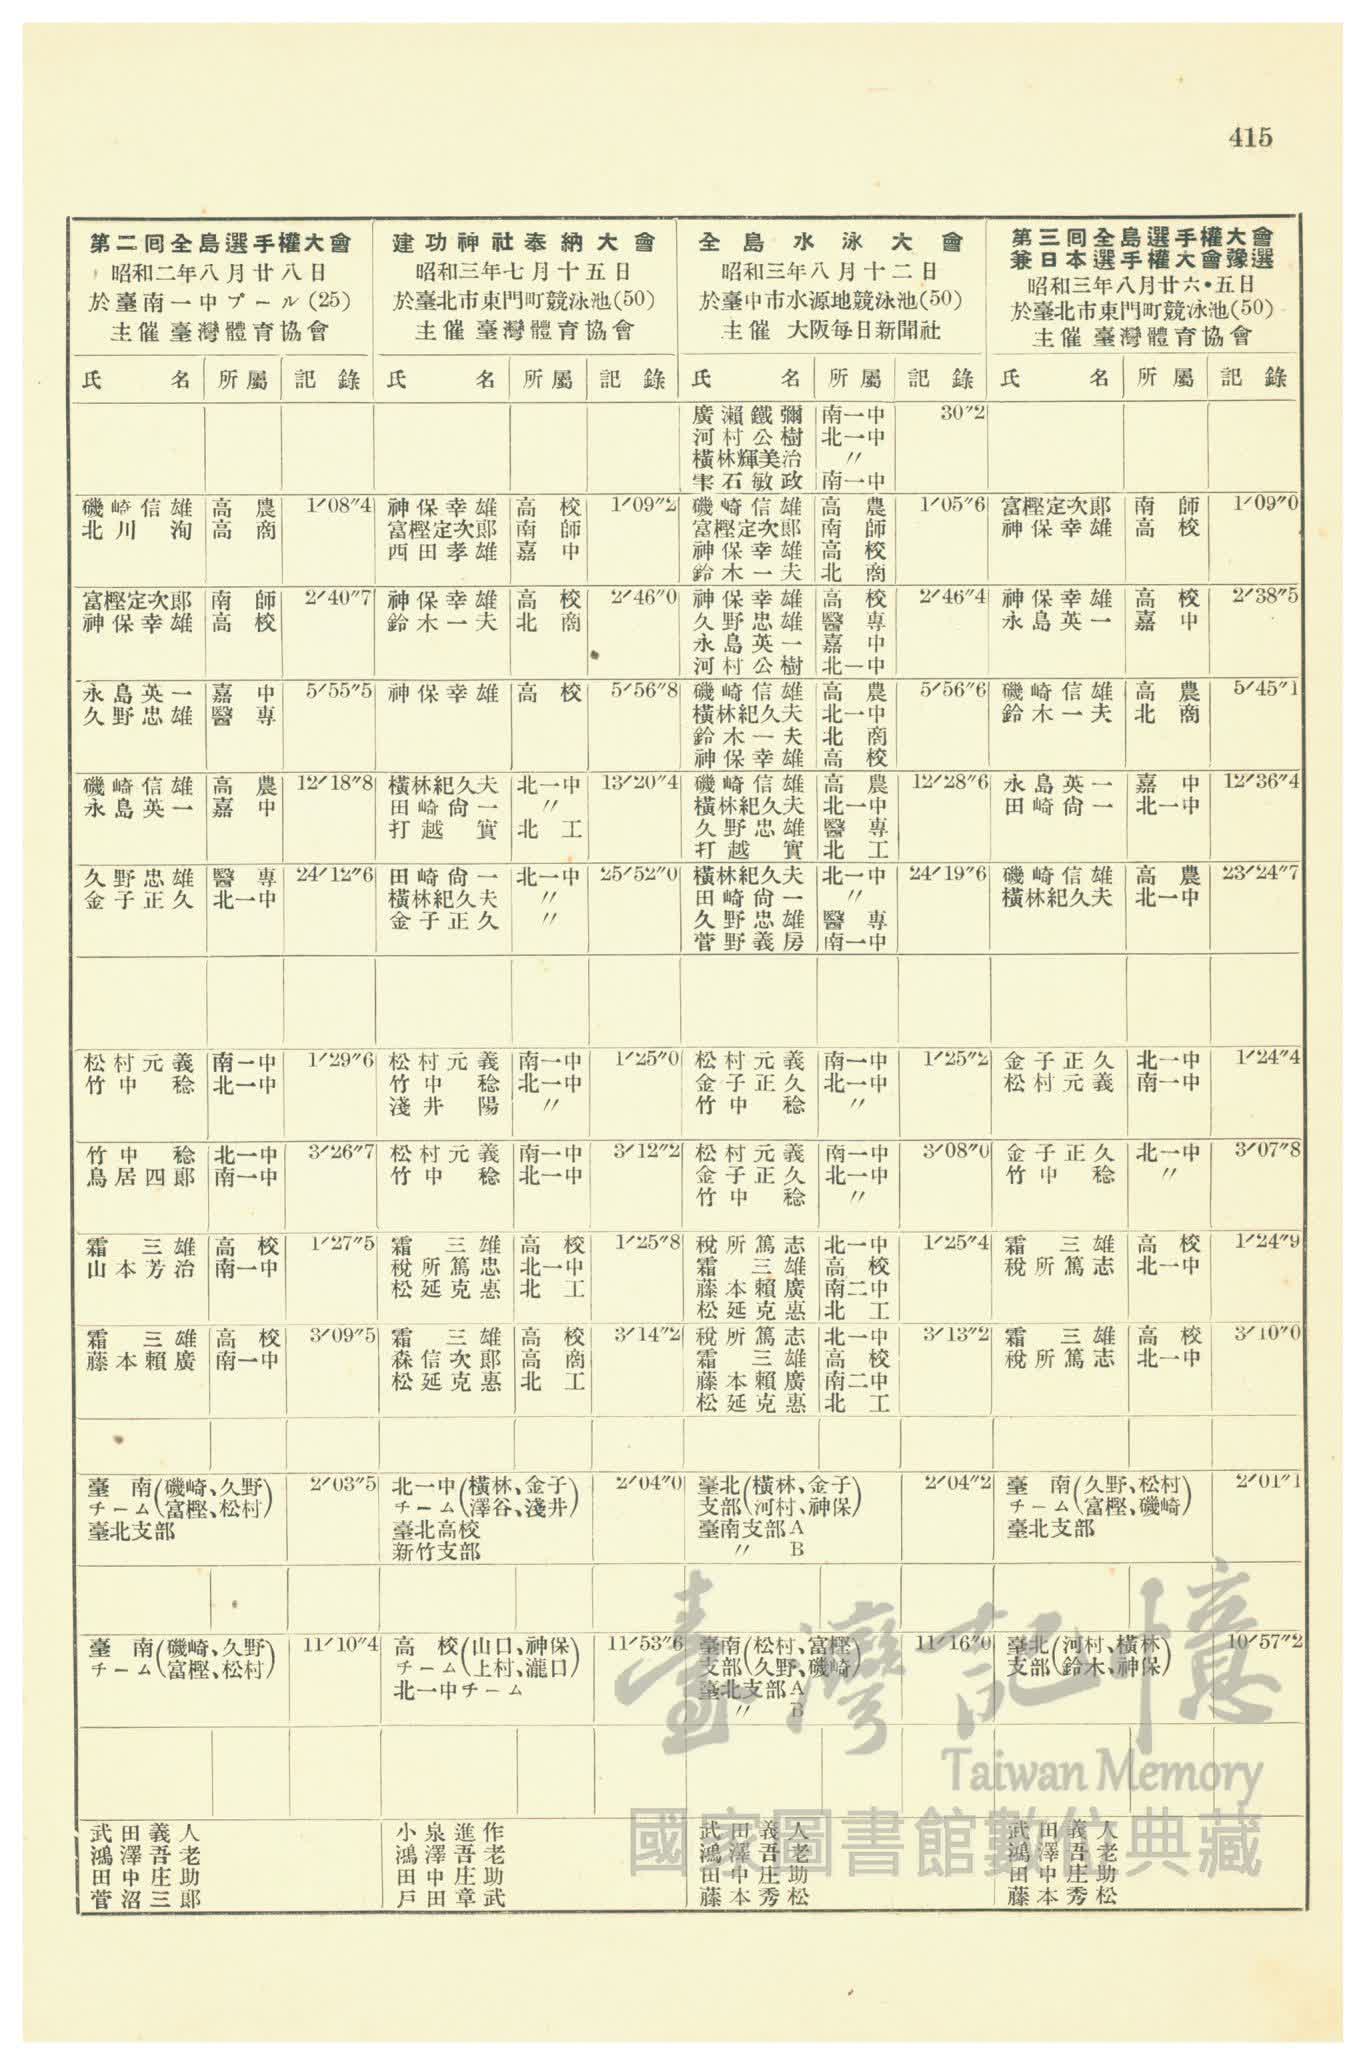 415
第二囘全島選手權大會
昭和二年八月廿八日
於臺南一中プール(25)
主催 臺灣體育協會
建功神社奉納大會
昭和三年七月十五日
於臺北市東門町競泳池(50)
主催 臺灣體育協會
全島水泳大會
昭和三年八月十二日
於臺中市水源地競泳池(50)
主催 大阪每日新聞社
第三囘全島選手權大會
兼日本選手權大會豫選
昭和三年八月廿六・五日
於臺北市東門町競泳池(50)
主催 臺灣體育協會
氏名 所屬 記錄 氏名 所屬 記錄 氏名 所屬 記錄 氏名 所屬 記錄
廣瀨鐵彌 南一中 30″2
河村公樹 北一中
橫林輝美治 〃
雫石敏政 南一中
磯崎信雄 高農 1′08″4 神保幸雄 高校 1′09″2 磯崎信雄 高農 1′05″6 富樫定次郞 南師 1′09″0
北川洵 高商 富樫定次郞 南師 富樫定次郞 南師 神保幸雄 高校
西田孝雄 嘉中 神保幸雄 高校
鈴木一夫 北商
富樫定次郞 南師 2′40″7 神保幸雄 高校 2′46″0 神保幸雄 高校 2′46″4 神保幸雄 高校 2′38″5
神保幸雄 高校 鈴木一夫 北商 久野忠雄 醫專 永島英一 嘉中
永島英一 嘉中
河村公樹 北一中
永島英一 嘉中 5′55″5 神保幸雄 高校 5′56″8 磯崎信雄 高農 5′56″6 磯崎信雄 高農 5′45″1
久野忠雄 醫專 橫林紀久夫 北一中 鈴木一夫 北商
鈴木一夫 北商
神保幸雄 高校
磯崎信雄 高農 12′18″8 橫林紀久夫 北一中 13′20″4 磯崎信雄 高農 12′28″6 永島英一 嘉中 12′36″4
永島英一 嘉中 田崎尙一 〃 橫林紀久夫 北一中 田崎尙一 北一中
打越實 北工 久野忠雄 醫專
打越實 北工
久野忠雄 醫專 24′12″6 田崎尙一 北一中 25′52″0 橫林紀久夫 北一中 24′19″6 磯崎信雄 高農 23′24″7
金子正久 北一中 橫林紀久夫 〃 田崎尙一 〃 橫林紀久夫 北一中
金子正久 〃 久野忠雄 醫專
菅野義房 南一中
松村元義 南一中 1′29″6 松村元義 南一中 1′25″0 松村元義 南一中 1′25″2 金子正久 北一中 1′24″4
竹中稔 北一中 竹中稔 北一中 金子正久 北一中 松村元義 南一中
淺井陽 〃 竹中稔 〃
竹中稔 北一中 3′26″7 松村元義 南一中 3′12″2 松村元義 南一中 3′08″0 金子正久 北一中 3′07″8
鳥居四郞 南一中 竹中稔 北一中 金子正久 北一中 竹中稔 〃
竹中稔 〃
霜三雄 高校 1′27″5 霜三雄 高校 1′25″8 稅所篤志 北一中 1′25″4 霜三雄 高校 1′24″9
山本芳治 南一中 稅所篤忠 北一中 霜三雄 高校 稅所篤志 北一中
松延克惠 北工 藤本賴廣 南二中
松延克惠 北工
霜三雄 高校 3′09″5 霜三雄 高校 3′14″2 稅所篤志 北一中 3′13″2 霜三雄 高校 3′10″0
藤本賴廣 南一中 森信次郞 高商 霜三雄 高校 稅所篤志 北一中
松延克惠 北工 藤本賴廣 南二中
松延克惠 北工
臺南(磯崎、久野) 2′03″5 北一中(橫林、金子) 2′04″0 臺北(橫林、金子) 2′04″2 臺南(久野、松村) 2′01″1
チーム(富樫、松村) チーム(澤谷、淺井) 支部(河村、神保) チーム(富樫、磯崎)
臺北支部 臺北高校 臺南支部A 臺北支部
新竹支部 〃 B
臺南(磯崎、久野) 11′10″4 高校(山口、神保) 11′53″6 臺南(松村、富樫) 11′16″0 臺北(河村、橫林) 10′57″2
チーム(富樫、松村) チーム(上村、瀧口) 支部(久野、磯崎) 支部(鈴木、神保)
北一中チーム 臺北支部A
〃 B
武田義人 小泉進作 武田義人 武田義人
鴻澤吾老 鴻澤吾老 鴻澤吾老 鴻澤吾老
田中庄助 田中庄助 田中庄助 田中庄助
菅沼三郞 戶田章武 藤本秀松 藤本秀松
臺灣記憶
Taiwan Memory
國家圖書館數位典藏